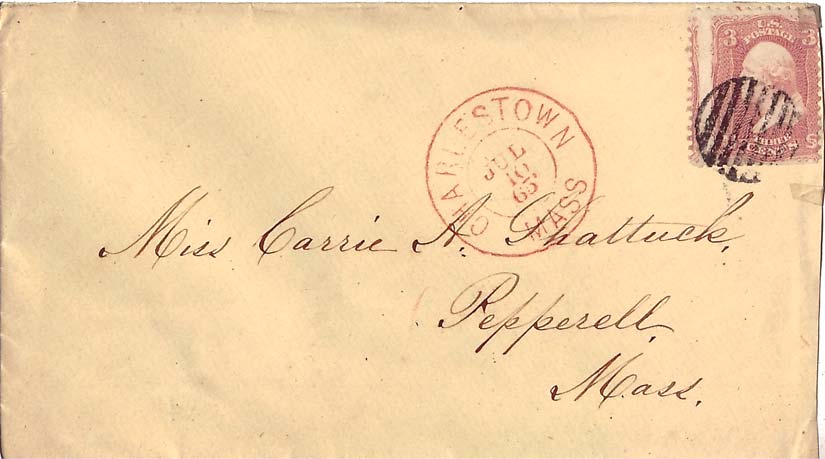 U.S. POSTAGE
3 3
THREE
CENTS
CHARLESTOWN
JUL
10
65
MASS
Miss Carrie A. Shattuck,
Pepperell,
Mass.